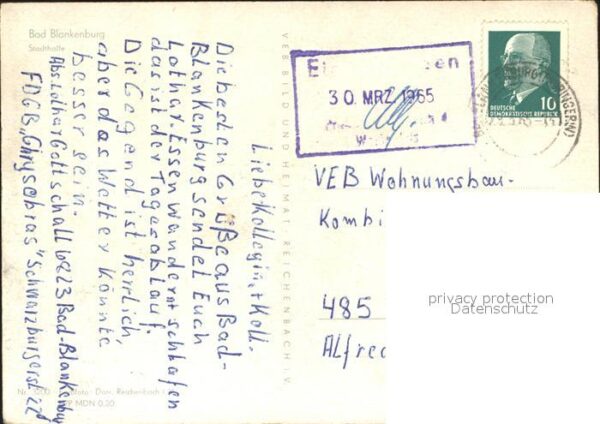 Bad Blankenburg
Stadthalle
Liebe Kollegin, + Koll.
Die besten Grüße aus Bad-
Blankenburg sendet Euch
Lothar. Essen wandern + schlafen
das ist der Tagesablauf.
Die Gegend ist herrlich,
aber das Wetter könnte
besser sein.
Abs. Lothar Gottschall 6823 Bad-Blankenburg
FDGB „Chrysopras" Schwarzburgerst 22
VEB BILD UND HEIMAT REICHENBACH I. V.
30. MRZ. 1965
DEUTSCHE
DEMOKRATISCHE REPUBLIK
10
VEB Wohnungsbau-
Kombi
485
Alfred
privacy protection
Datenschutz
MDN 0,20